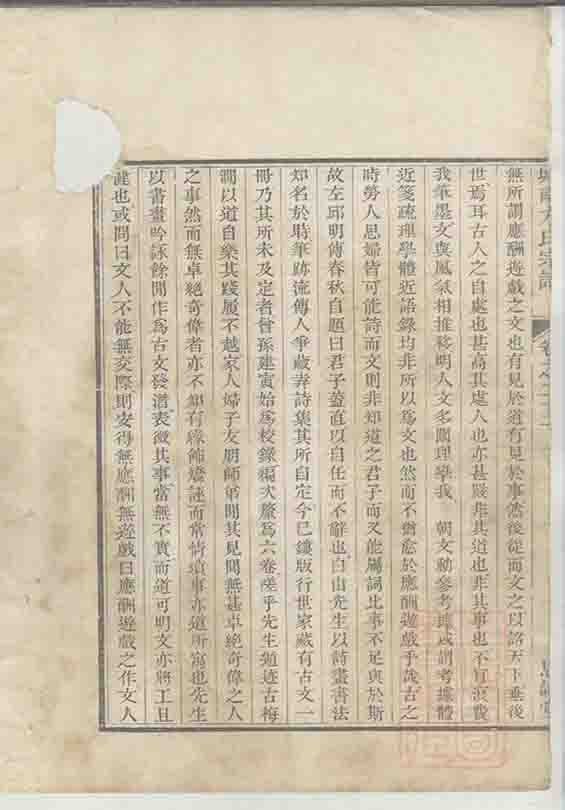 無所謂應酬遊戲之文也有見於道有見於事然後從而文之以詔天下垂後
世焉耳古人之自處也甚高其處人也亦甚嚴非其道也非其事也不肯浪費
我筆墨文與風氣相推移明人文多闌理學我 朝文動參考據或謂考據體
近箋疏理學體近語錄均非所以為文也然而不猶愈於應酬遊戲乎哉古之
時勞人思婦皆可能詩而文則非知道之君子而又能屬詞比事不足與於斯
故左邱明傳春秋自題曰君子蓋直以自任而不辭也白山先生以詩畫書法
知名於時筆跡流傳人爭藏弆詩集其所自定今已鏤版行世家藏有古文一
冊乃其所未及定者曾孫建寅始為校錄編次釐為六卷嗟乎先生遁迹古梅
澗以道自樂其踐履不越家人婦子友朋師弟間其見聞無甚卓絕奇偉之人
之事然而無卓絕奇偉者亦不知有緣飾矯誣而常情瑣事亦道所寓也先生
以書畫吟詠餘閒作為古文發潛表微其事當無不實而道可明文亦將工且
謹也或問曰文人不能無交際則安得無應酬無遊戲曰應酬遊戲之作文人